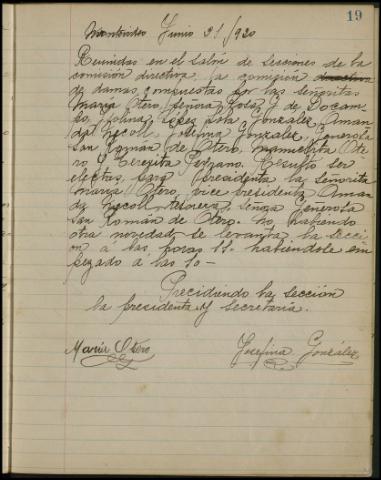 19
Montevideo Junio 21/1920
Reunidas en el salón de secciones de la
comisión directiva, la comisión directiva
de damas, compuestas por las señoritas
María Otero, Señora Rosa J. de Docam
po, López Sola González, Aman
da Nicoll, Josefina González, Señerola
San Román de Otero, Manuelita Ote
ro y Teresita Perrano. Resultó ser
electas, para presidenta la señorita
María Otero, vice presidenta Aman
da Nicoll, tesorera, señora Señerola
San Román de Otero. No habiendo
otra novedad se levanta la secci
on á las horas 11. habiendole em
pezado á las 10 —
Precidiendo la sección
la presidenta y secretaria.
María Otero Josefina González